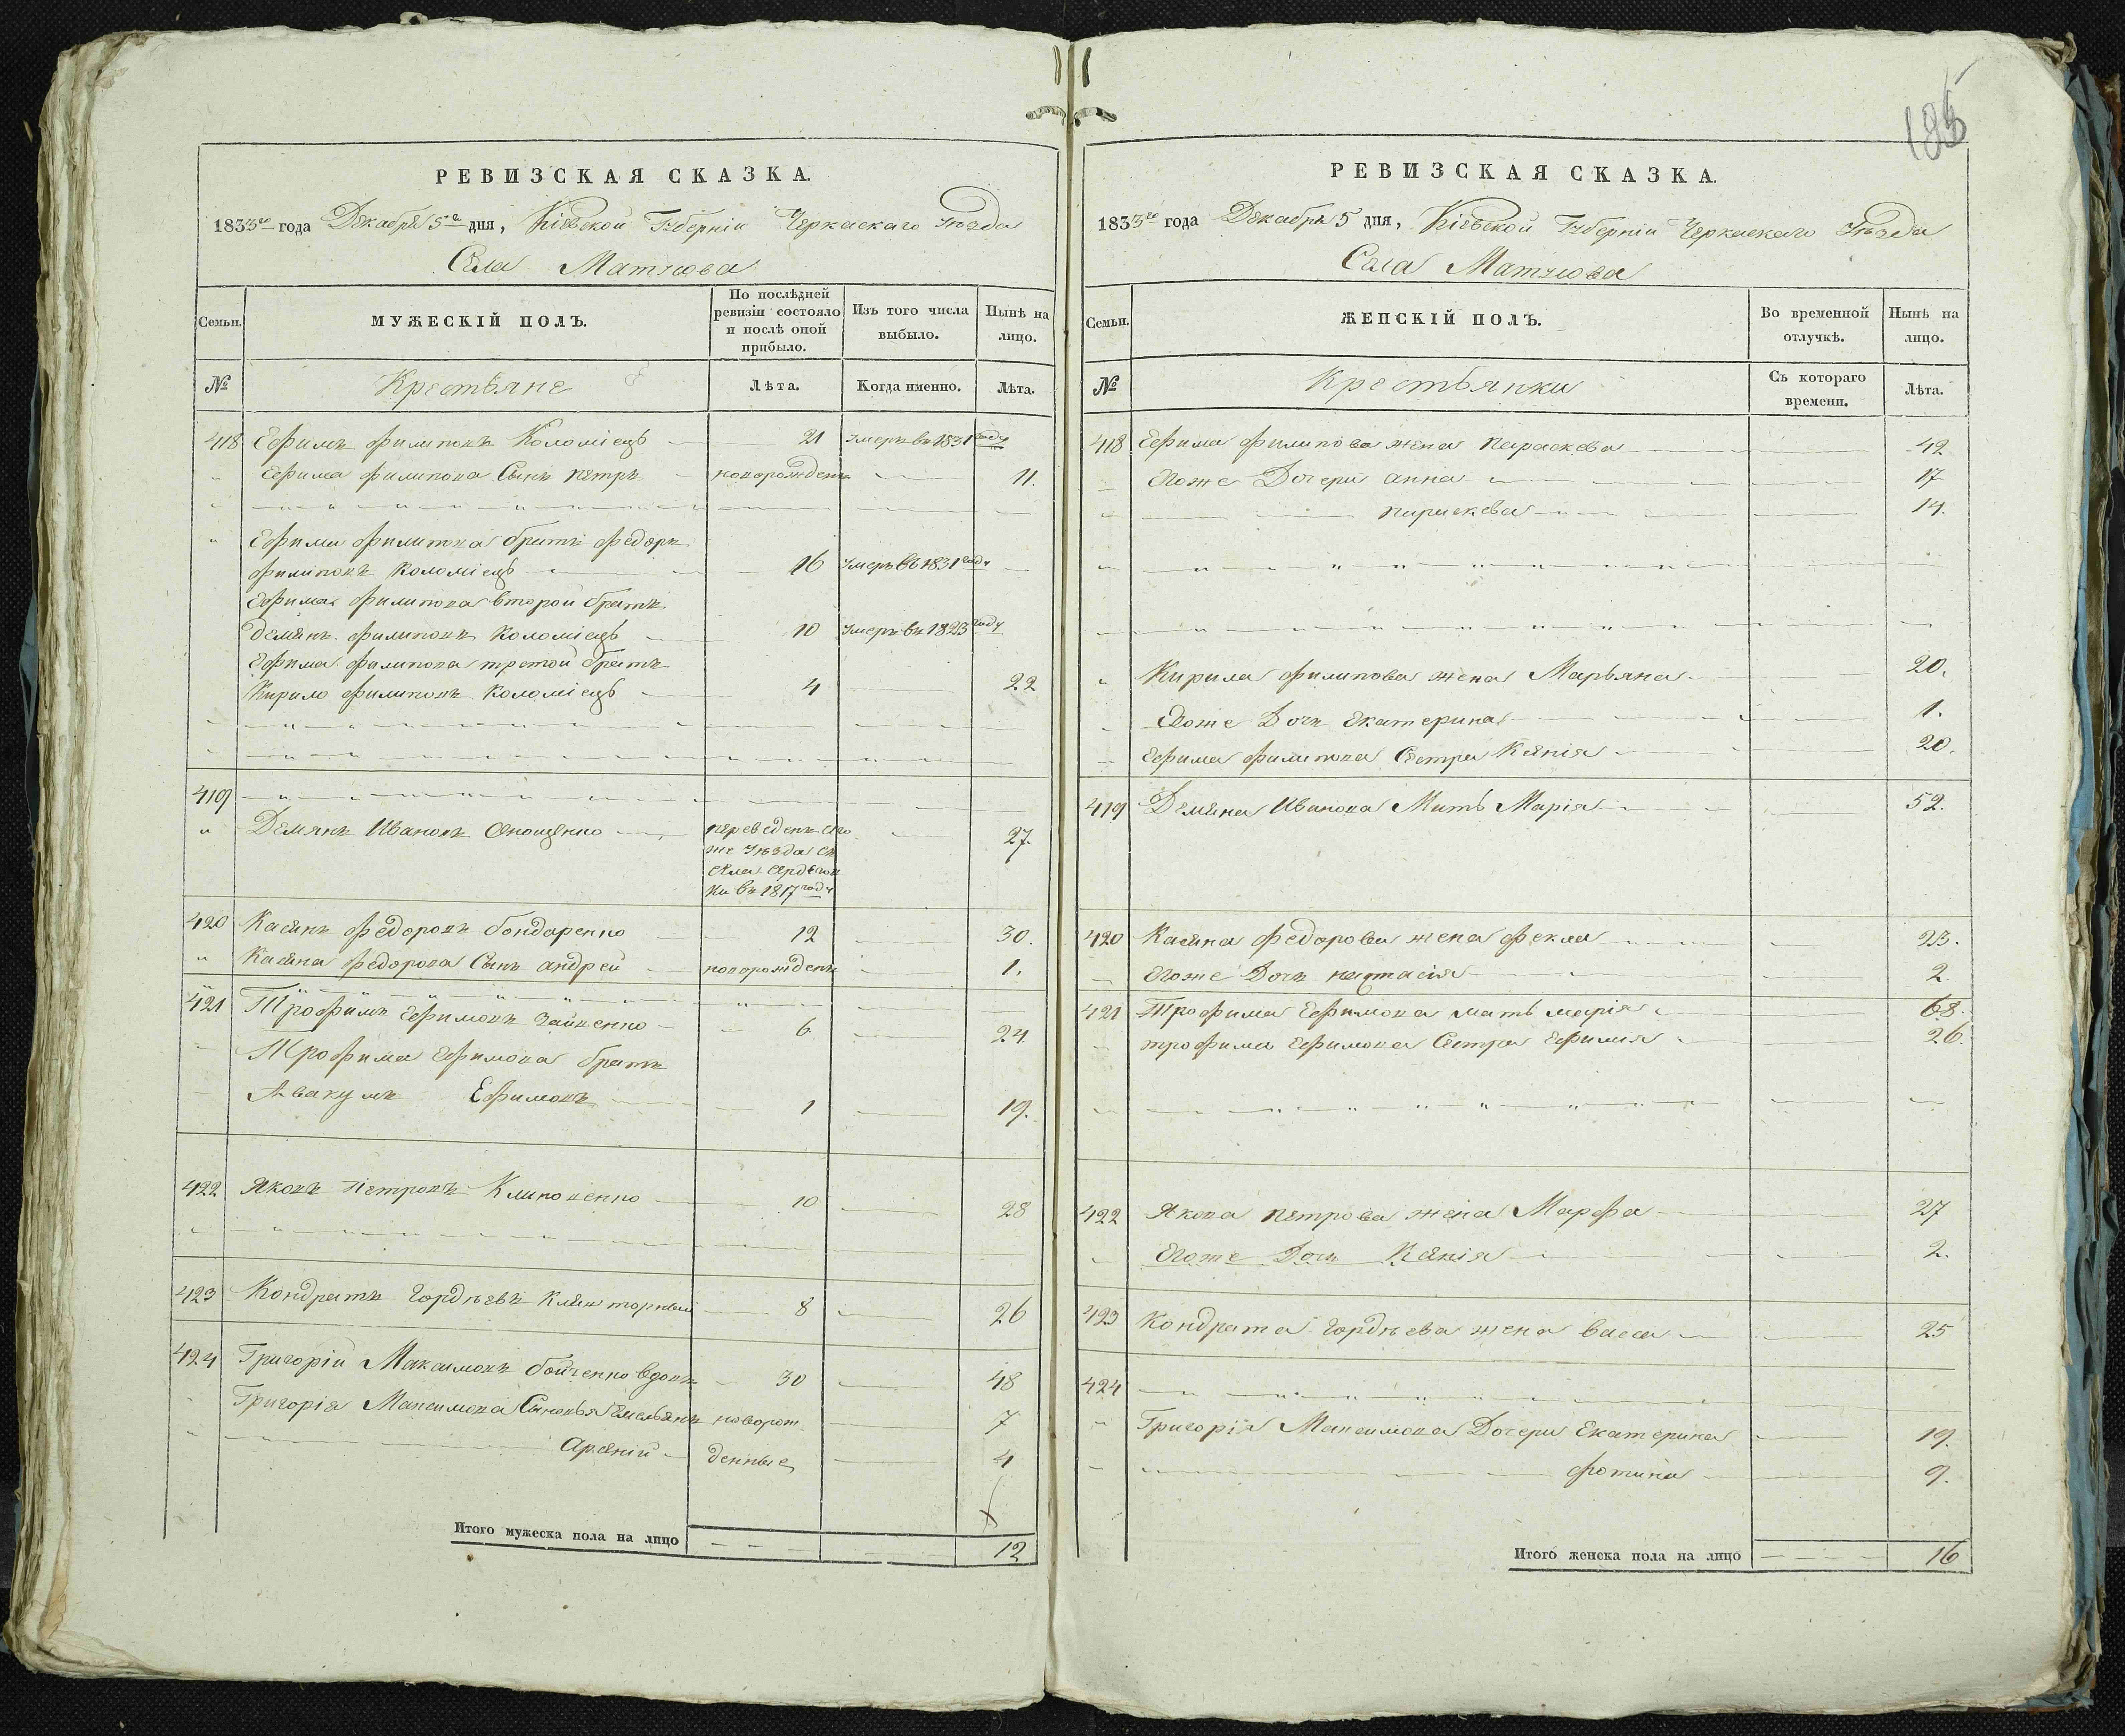 185
РЕВИЗСКАЯ СКАЗКА.
1833го года Декабря 5го дня, Кіевской Губерніи Черкаскаго Уѣзда
Села Матусова
Семьи.
МУЖЕСКІЙ ПОЛЪ.
По послѣдней ревизіи состояло и послѣ оной прибыло.
Изъ того числа выбыло.
Нынѣ на лицо.
№
Крестьяне
Лѣта.
Когда именно.
Лѣта.
418 Ефимъ Филиповъ Коломіецъ 21 умеръ въ 1831 году
Ефима Филипова Сынъ петръ новорожденъ 11.
Ефима Филипова братъ Федоръ
Филиповъ Коломіецъ 16 умеръ въ 1831 году
Ефима Филипова второй братъ
Демянъ Филиповъ Коломіецъ 10 умеръ въ 1823 году
Ефима Филипова третой братъ
Кирило Филиповъ Коломіецъ 4 22
419
Демянъ Ивановъ 27.
переведенъ того
же Уѣзда съ
села
ки въ 1817 году
420 Касянъ Федоровъ бондаренко 12 30.
Касяна Федорова Сынъ андрей новорожденъ 1.
421 Трофимъ Ефимовъ Заиченко 6 24.
Трофима Ефимова братъ
Авакумъ Ефимовъ 1 19.
422 Яковъ Петровъ Клименко 10 28
423 Кондратъ Гордѣевъ Кляшторный 8 26
424 Григорій Максимовъ бойченко вдовъ 30 48
Григорія Максимова Сыновья Емельянъ новорож 7
Арсеній денные 4
Итого мужеска пола на лицо 12
РЕВИЗСКАЯ СКАЗКА.
1833го года Декабря 5 дня, Кіевской Губерніи Черкаскаго Уѣзда
Села Матусова
Семьи.
ЖЕНСКІЙ ПОЛЪ.
Во временной отлучкѣ.
Нынѣ на лицо.
№
Крестьянки
Съ котораго времени.
Лѣта.
418 Ефима Филипова жена параскева 42
Егоже Дочери анна 17
параскева 14.
Кирила Филипова жена Марьяна 20.
Егоже Дочь Екатерина 1.
Ефима Филипова Сестра Ксенія 20.
419 Демяна Иванова Мать Марія 52.
420 Касяна Федорова жена фекла 23.
Егоже Дочь настасія 2
421 Трофима Ефимова мать марія 68.
трофима Ефимова Сестра Ефимія 26.
422 Якова петрова жена Марфа 27
Егоже Дочь Ксенія 2.
423 Кондрата Гордѣева жена васса 25
424
Григорія Максимова Дочери Екатерина 19.
фотина 9.
Итого женска пола на лицо 16